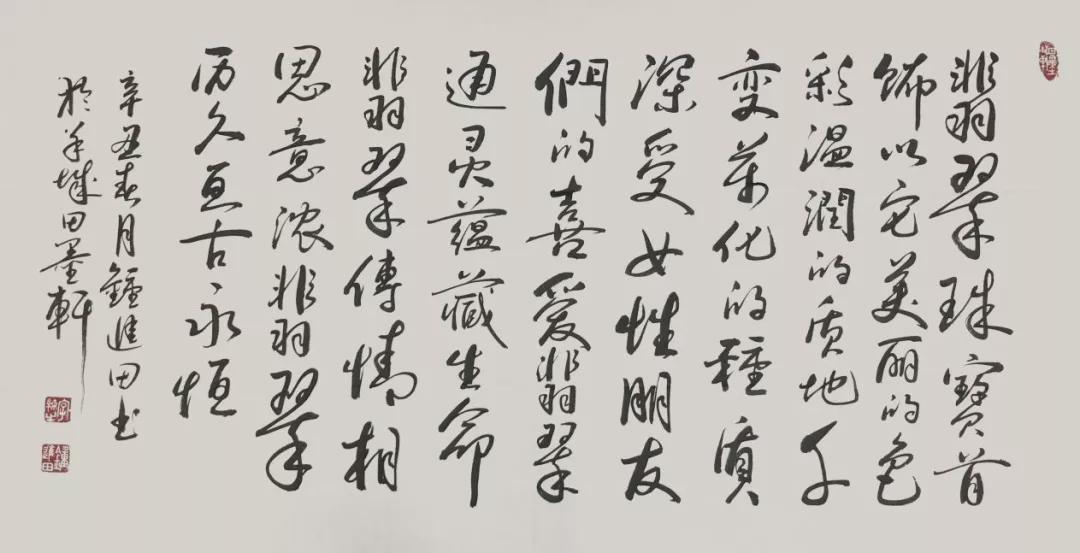 翡翠珠寶首
饰以它美丽的色
彩温潤的质地千
变萬化的種質
深受女性朋友
們的喜愛翡翠
通灵蕴藏生命
翡翠傳情相
思意浓翡翠
历久亘古永恒
辛丑春月鐘進田书
於羊城田墨軒